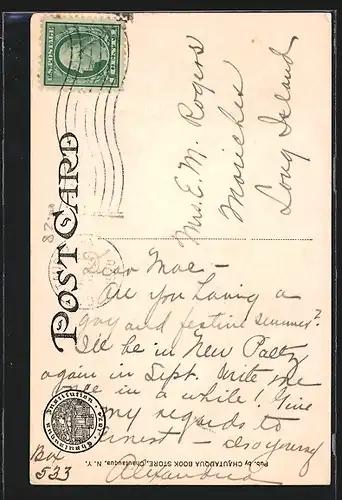 U.S. POSTAGE
POST CARD
Mrs. E. M. Rogers
Moriches
Long Island
Dear Mae -
Are you having a
gay and festive summer?
I'll be in New Paltz
again in Sept. Write me
once in a while! Give
my regards to
Ernest - also yourself
Alexandria
Box
533
Pub. by CHAUTAUQUA BOOK STORE, Chautauqua, N. Y.
Chautauqua Institution